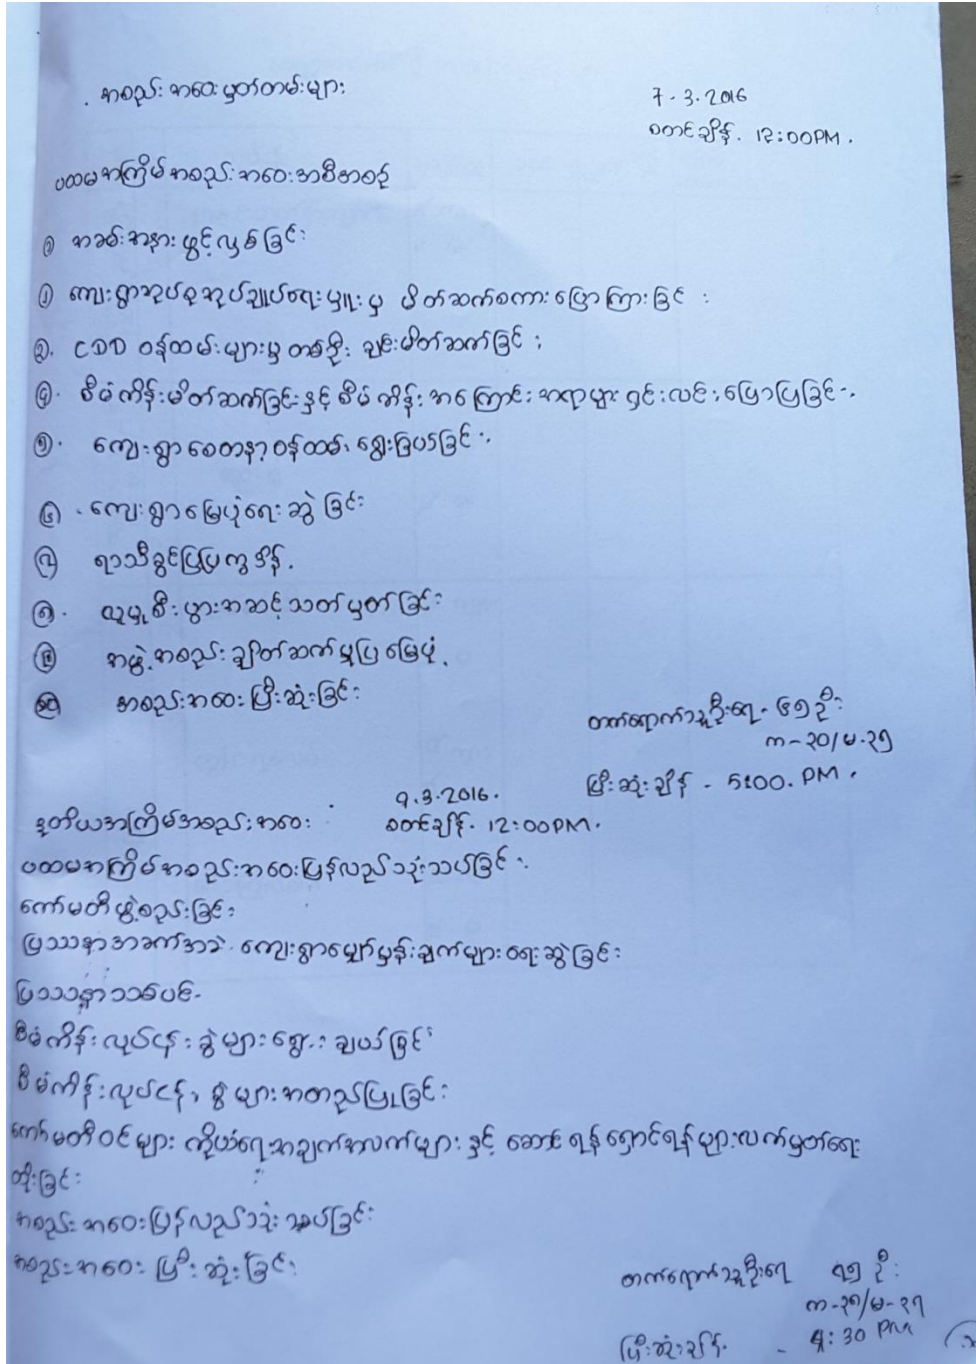 အစည်းအဝေးမှတ်တမ်းများ
7.3.2016
စတင်ချိန်. 12:00PM.
ပထမအကြိမ်အစည်းအဝေးအစီအစဉ်
၁ အခမ်းအနားဖွင့်လှစ်ခြင်း
၂ ကျေးရွာအုပ်စုအုပ်ချုပ်ရေးမှူးမှ မိတ်ဆက်စကားပြောကြားခြင်း
၃. CDD ဝန်ထမ်းများမှ တစ်ဦးချင်းမိတ်ဆက်ခြင်း
၄. စီမံကိန်းမိတ်ဆက်ခြင်းနှင့် စီမံကိန်းအကြောင်းအရာများ ရှင်းလင်းပြောပြခြင်း
၅. ကျေးရွာစေတနာ့ဝန်ထမ်းရွေးခြယ်ခြင်း
၆. ကျေးရွာမြေပုံရေးဆွဲခြင်း
၇ ရာသီခွင်ပြပြက္ခဒိန်.
၈. လူမှုစီးပွားအဆင့်သတ်မှတ်ခြင်း
၉ အဖွဲ့အစည်းချိတ်ဆက်မှုပြမြေပုံ
၁၀ အစည်းအဝေးပြီးဆုံးခြင်း
တက်ရောက်သူဦးရေ -
က-၃၀/မ-၃၅
ပြီးဆုံးချိန် - 5:00. PM.
9.3.2016.
ဒုတိယအကြိမ်အစည်းအဝေး စတင်ချိန်. 12:00PM.
ပထမအကြိမ်အစည်းအဝေးပြန်လည်သုံးသပ်ခြင်း
ကော်မတီဖွဲ့စည်းခြင်း
ပြဿနာအခက်အခဲ. ကျေးရွာမျှော်မှန်းချက်များရေးဆွဲခြင်း
ပြဿနာသစ်ပင်.
စီမံကိန်းလုပ်ငန်းခွဲများရွေးချယ်ခြင်း
စီမံကိန်းလုပ်ငန်းခွဲများအတည်ပြုခြင်း
ကော်မတီဝင်များ ကိုယ်ရေးအချက်အလက်များနှင့် ဆောင်ရန်ရှောင်ရန်များလက်မှတ်ရေး
ထိုးခြင်း
အစည်းအဝေးပြန်လည်သုံးသပ်ခြင်း
အစည်းအဝေးပြီးဆုံးခြင်း
တက်ရောက်သူဦးရေ ဦး
ပြီးဆုံးချိန်. - 4:30 PM